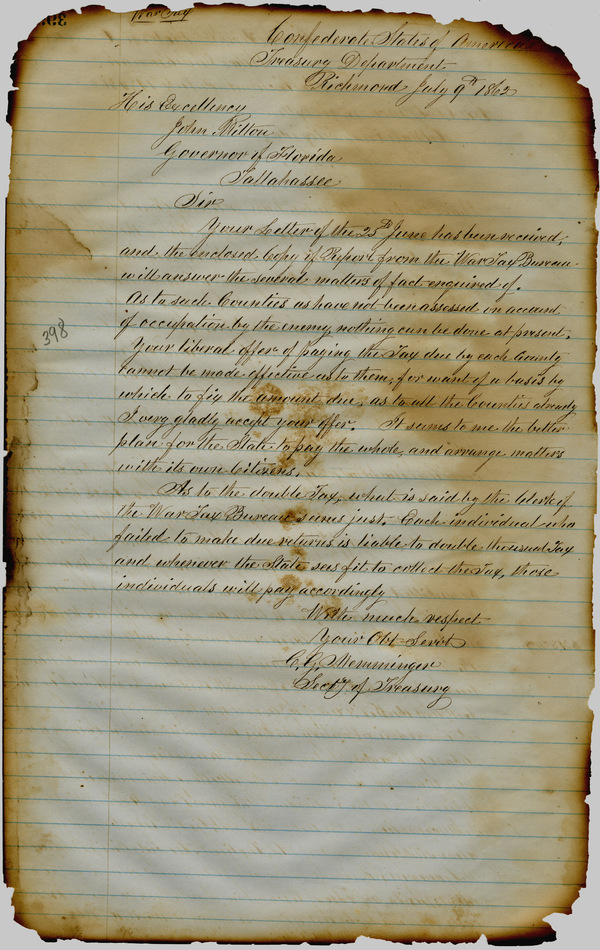 War Tax
Confederate States of America
Treasury Department
Richmond July 9th 1862
His Excellency
John Milton
Governor of Florida
Tallahassee
Sir
Your Letter of the 25th June has been received,
and the enclosed Copy of Report from the War Tax Bureau
will answer the several matters of fact enquired of.
As to such Counties as have not been assessed on account
of occupation by the enemy, nothing can be done at present.
Your liberal offer of paying the Tax due by each County
cannot be made effective as to them, for want of a basis by
which to fix the amount due; as to all the Counties already
I very gladly accept your offer. It seems to me the better
plan for the State to pay the whole, and arrange matters
with its own Citizens.
As to the double Tax, what is said by the Clerk of
the War Tax Bureau seems just. Each individual who
failed to make due returns is liable to double the usual Tax
and whenever the State sees fit to collect the Tax, those
individuals will pay accordingly
With much respect
Your Obt Servt
C. G. Memminger
Secty of Treasury
398